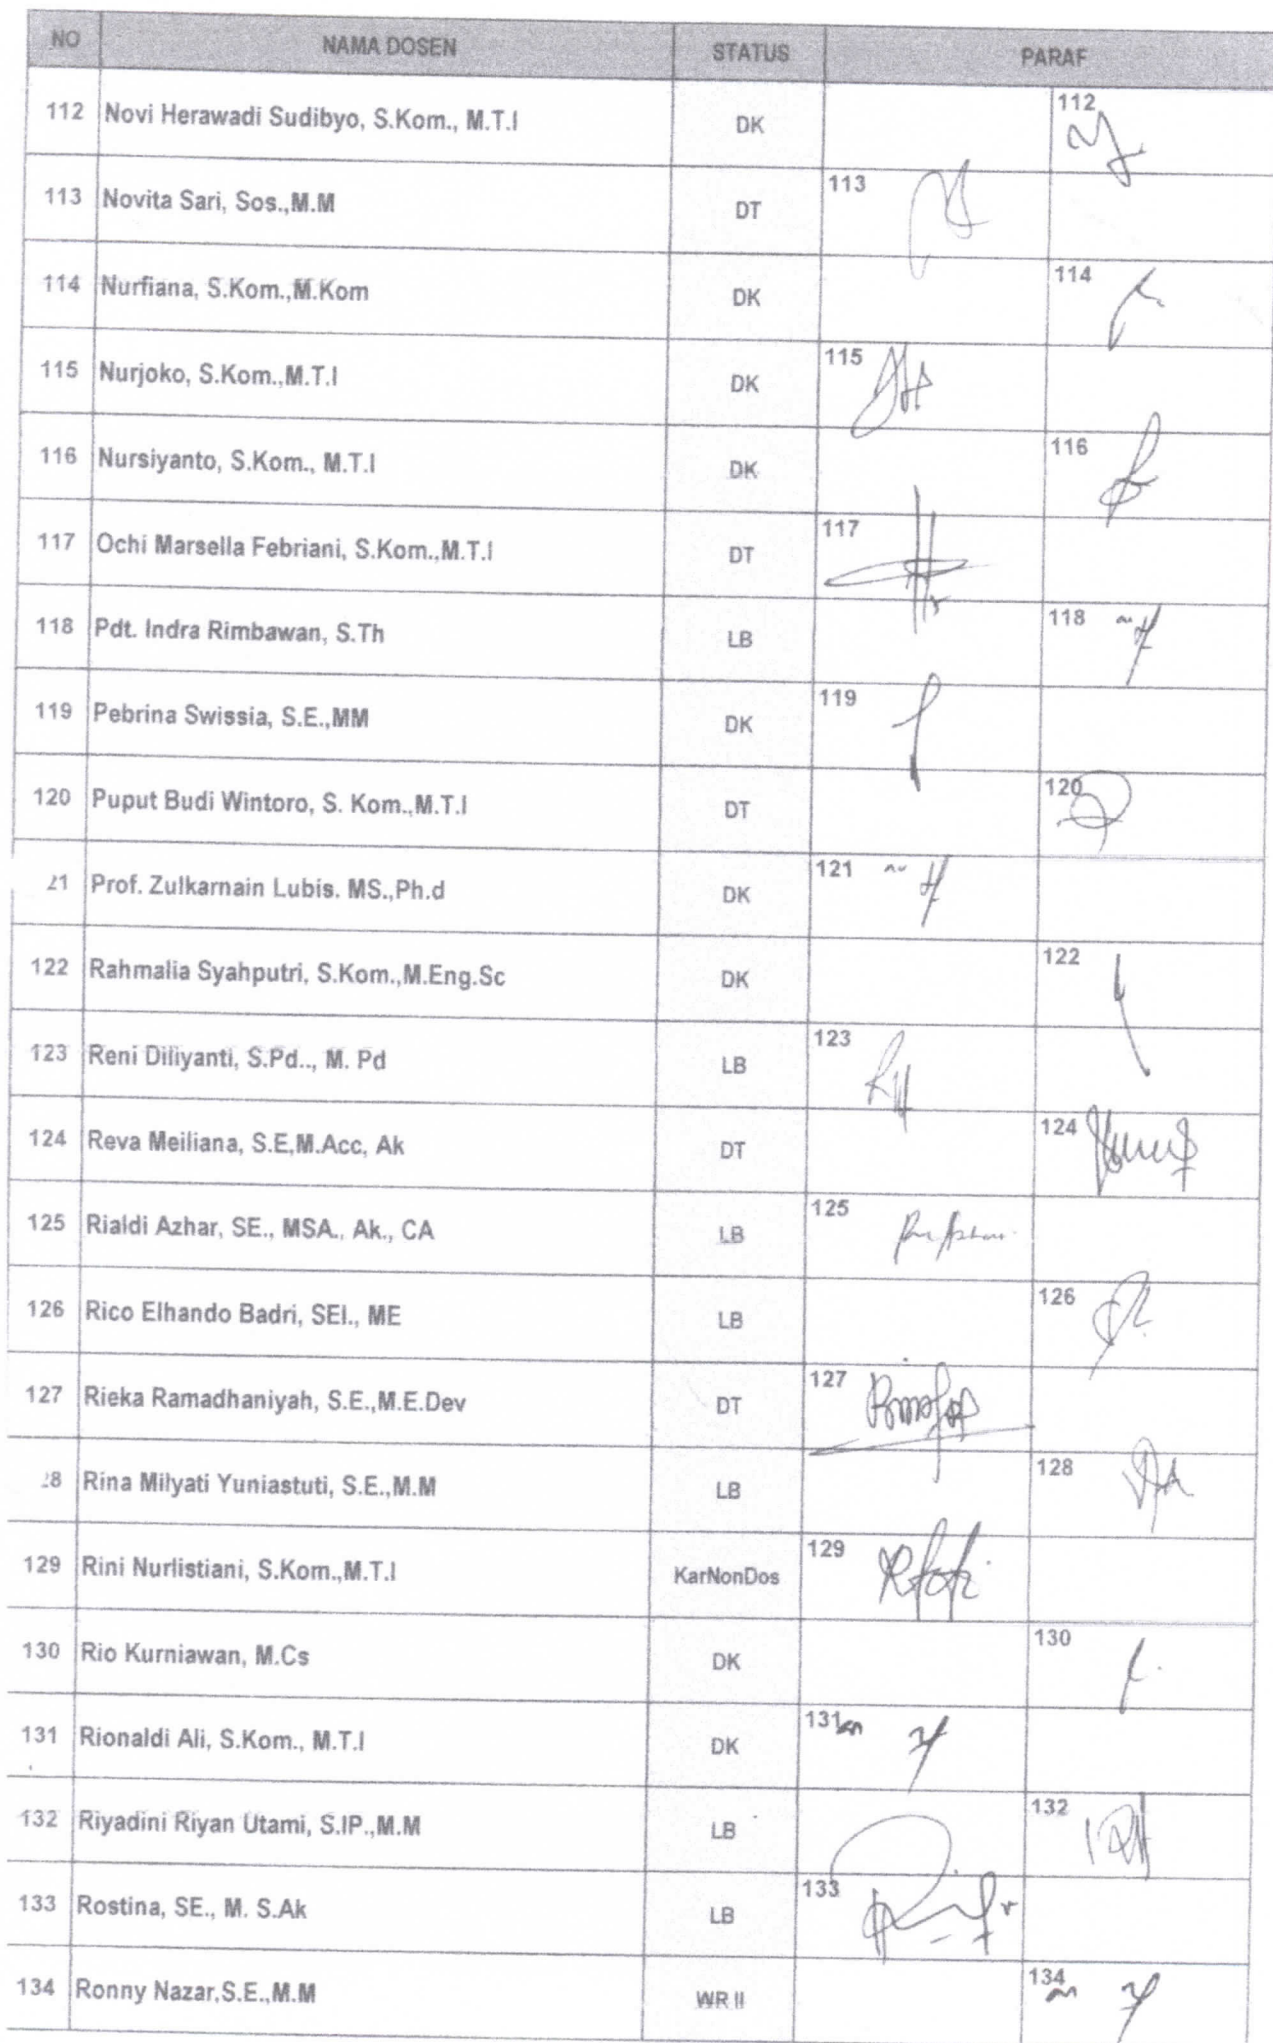 NO NAMA DOSEN STATUS PARAF
112 Novi Herawadi Sudibyo, S.Kom., M.T.I DK 112
113 Novita Sari, Sos.,M.M DT 113
114 Nurfiana, S.Kom.,M.Kom DK 114
115 Nurjoko, S.Kom.,M.T.I DK 115
116 Nursiyanto, S.Kom., M.T.I DK 116
117 Ochi Marsella Febriani, S.Kom.,M.T.I DT 117
118 Pdt. Indra Rimbawan, S.Th LB 118
119 Pebrina Swissia, S.E.,MM DK 119
120 Puput Budi Wintoro, S. Kom.,M.T.I DT 120
21 Prof. Zulkarnain Lubis. MS.,Ph.d DK 121
122 Rahmalia Syahputri, S.Kom.,M.Eng.Sc DK 122
123 Reni Diliyanti, S.Pd.., M. Pd LB 123
124 Reva Meiliana, S.E,M.Acc, Ak DT 124
125 Rialdi Azhar, SE., MSA., Ak., CA LB 125
126 Rico Elhando Badri, SEI., ME LB 126
127 Rieka Ramadhaniyah, S.E.,M.E.Dev DT 127
28 Rina Milyati Yuniastuti, S.E.,M.M LB 128
129 Rini Nurlistiani, S.Kom.,M.T.I KarNonDos 129
130 Rio Kurniawan, M.Cs DK 130
131 Rionaldi Ali, S.Kom., M.T.I DK 131
132 Riyadini Riyan Utami, S.IP.,M.M LB 132
133 Rostina, SE., M. S.Ak LB 133
134 Ronny Nazar,S.E.,M.M WR II 134